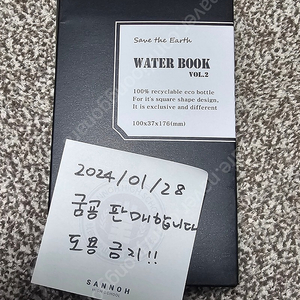 Save the Earth
WATER BOOK
VOL.2
100% recyclable eco bottle
For it's square shape design,
It is exclusive and different
100x37x176(mm)
2024/01/28
굼공 판매합니다
도용 금지!!
SANNOH